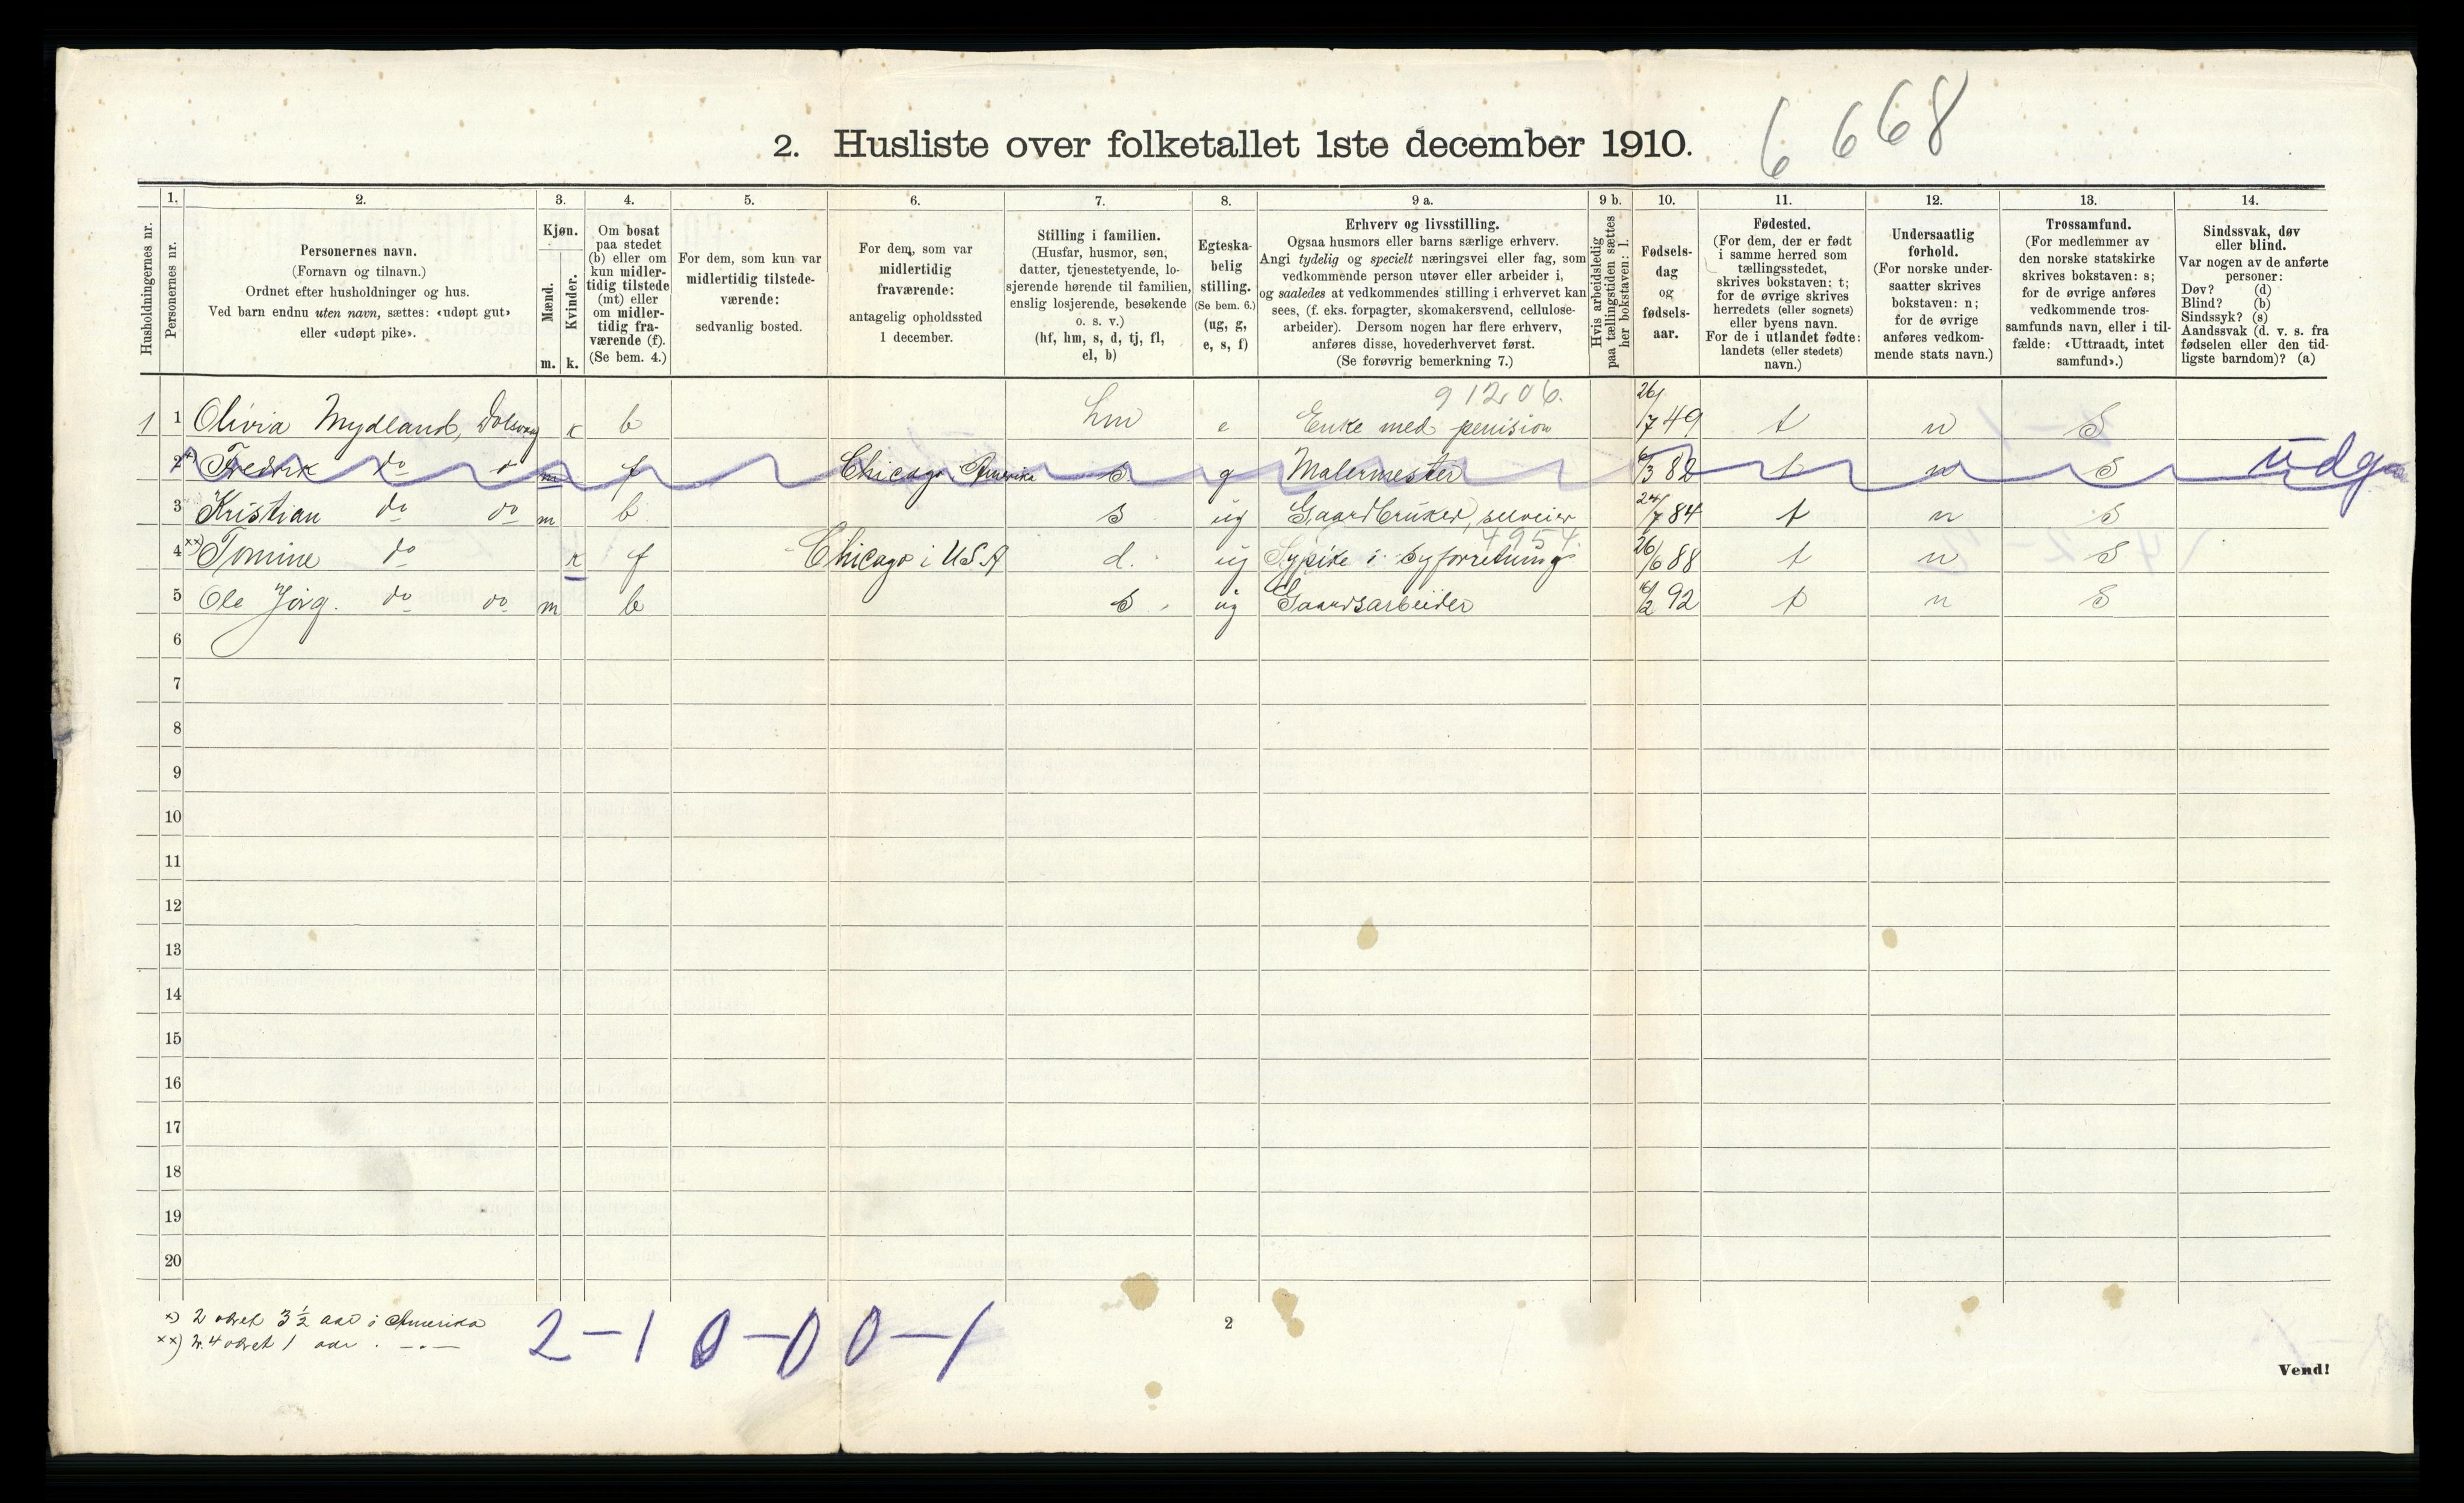 2. Husliste over folketallet 1ste december 1910.
6 6 6 8
Husholdningernes nr.
1.
Personernes nr.
2.
Personernes navn.
(Fornavn og tilnavn.)
Ordnet efter husholdninger og hus.
Ved barn endnu uten navn, sættes: «udøpt gut»
eller «udøpt pike».
3.
Kjøn.
Mænd.
Kvinder.
m. k.
4.
Om bosat
paa stedet
(b) eller om
kun midler-
tidig tilstede
(mt) eller
om midler-
tidig fra-
værende (f).
(Se bem. 4.)
5.
For dem, som kun var
midlertidig tilstede-
værende:
sedvanlig bosted.
6.
For dem, som var
midlertidig
fraværende:
antagelig opholdssted
1 december.
7.
Stilling i familien.
(Husfar, husmor, søn,
datter, tjenestetyende, lo-
sjerende hørende til familien,
enslig losjerende, besøkende
o. s. v.)
(hf, hm, s, d, tj, fl,
el, b)
8.
Egteska-
belig
stilling.
(Se bem. 6.)
(ug, g,
e, s, f)
9 a.
Erhverv og livsstilling.
Ogsaa husmors eller barns særlige erhverv.
Angi tydelig og specielt næringsvei eller fag, som
vedkommende person utøver eller arbeider i,
og saaledes at vedkommendes stilling i erhvervet kan
sees, (f. eks. forpagter, skomakersvend, cellulose-
arbeider). Dersom nogen har flere erhverv,
anføres disse, hovederhvervet først.
(Se forøvrig bemerkning 7.)
9 b.
Hvis arbeidsledig
paa tællingstiden sættes
her bokstaven: l.
10.
Fødsels-
dag
og
fødsels-
aar.
11.
Fødested.
(For dem, der er født
i samme herred som
tællingsstedet,
skrives bokstaven: t;
for de øvrige skrives
herredets (eller sognets)
eller byens navn.
For de i utlandet fødte:
landets (eller stedets)
navn.)
12.
Undersaatlig
forhold.
(For norske under-
saatter skrives
bokstaven: n;
for de øvrige
anføres vedkom-
mende stats navn.)
13.
Trossamfund.
(For medlemmer av
den norske statskirke
skrives bokstaven: s;
for de øvrige anføres
vedkommende tros-
samfunds navn, eller i til-
fælde: «Uttraadt, intet
samfund».)
14.
Sindssvak, døv
eller blind.
Var nogen av de anførte
personer:
Døv? (d)
Blind? (b)
Sindssyk? (s)
Aandssvak (d. v. s. fra
fødselen eller den tid-
ligste barndom)? (a)
9 12 06.
1 1 Olivia Mydland, k b hm e Enke med penision 26/7 49 t n S
2 x) Fredrik do do m f Chicago Amerika s. g Malermester 6/3 82 t n S udg
3 Kristian do do m b s ug Gaardbruker, selveier 24/7 84 t n S
4954.
4 xx) Tomine do k f Chicago i USA d. ug Sypike i Syforretning 26/6 88 t n S
5 Ole Jørg. do do m b s ug Gaardsarbeider 16/2 92 t n S
6
7
8
9
10
11
12
13
14
15
16
17
18
19
20
x) 2 3 1/2 aar i Amerika
xx) n. 4 1 aar
2-1 0-0 0-1
2
Vend!